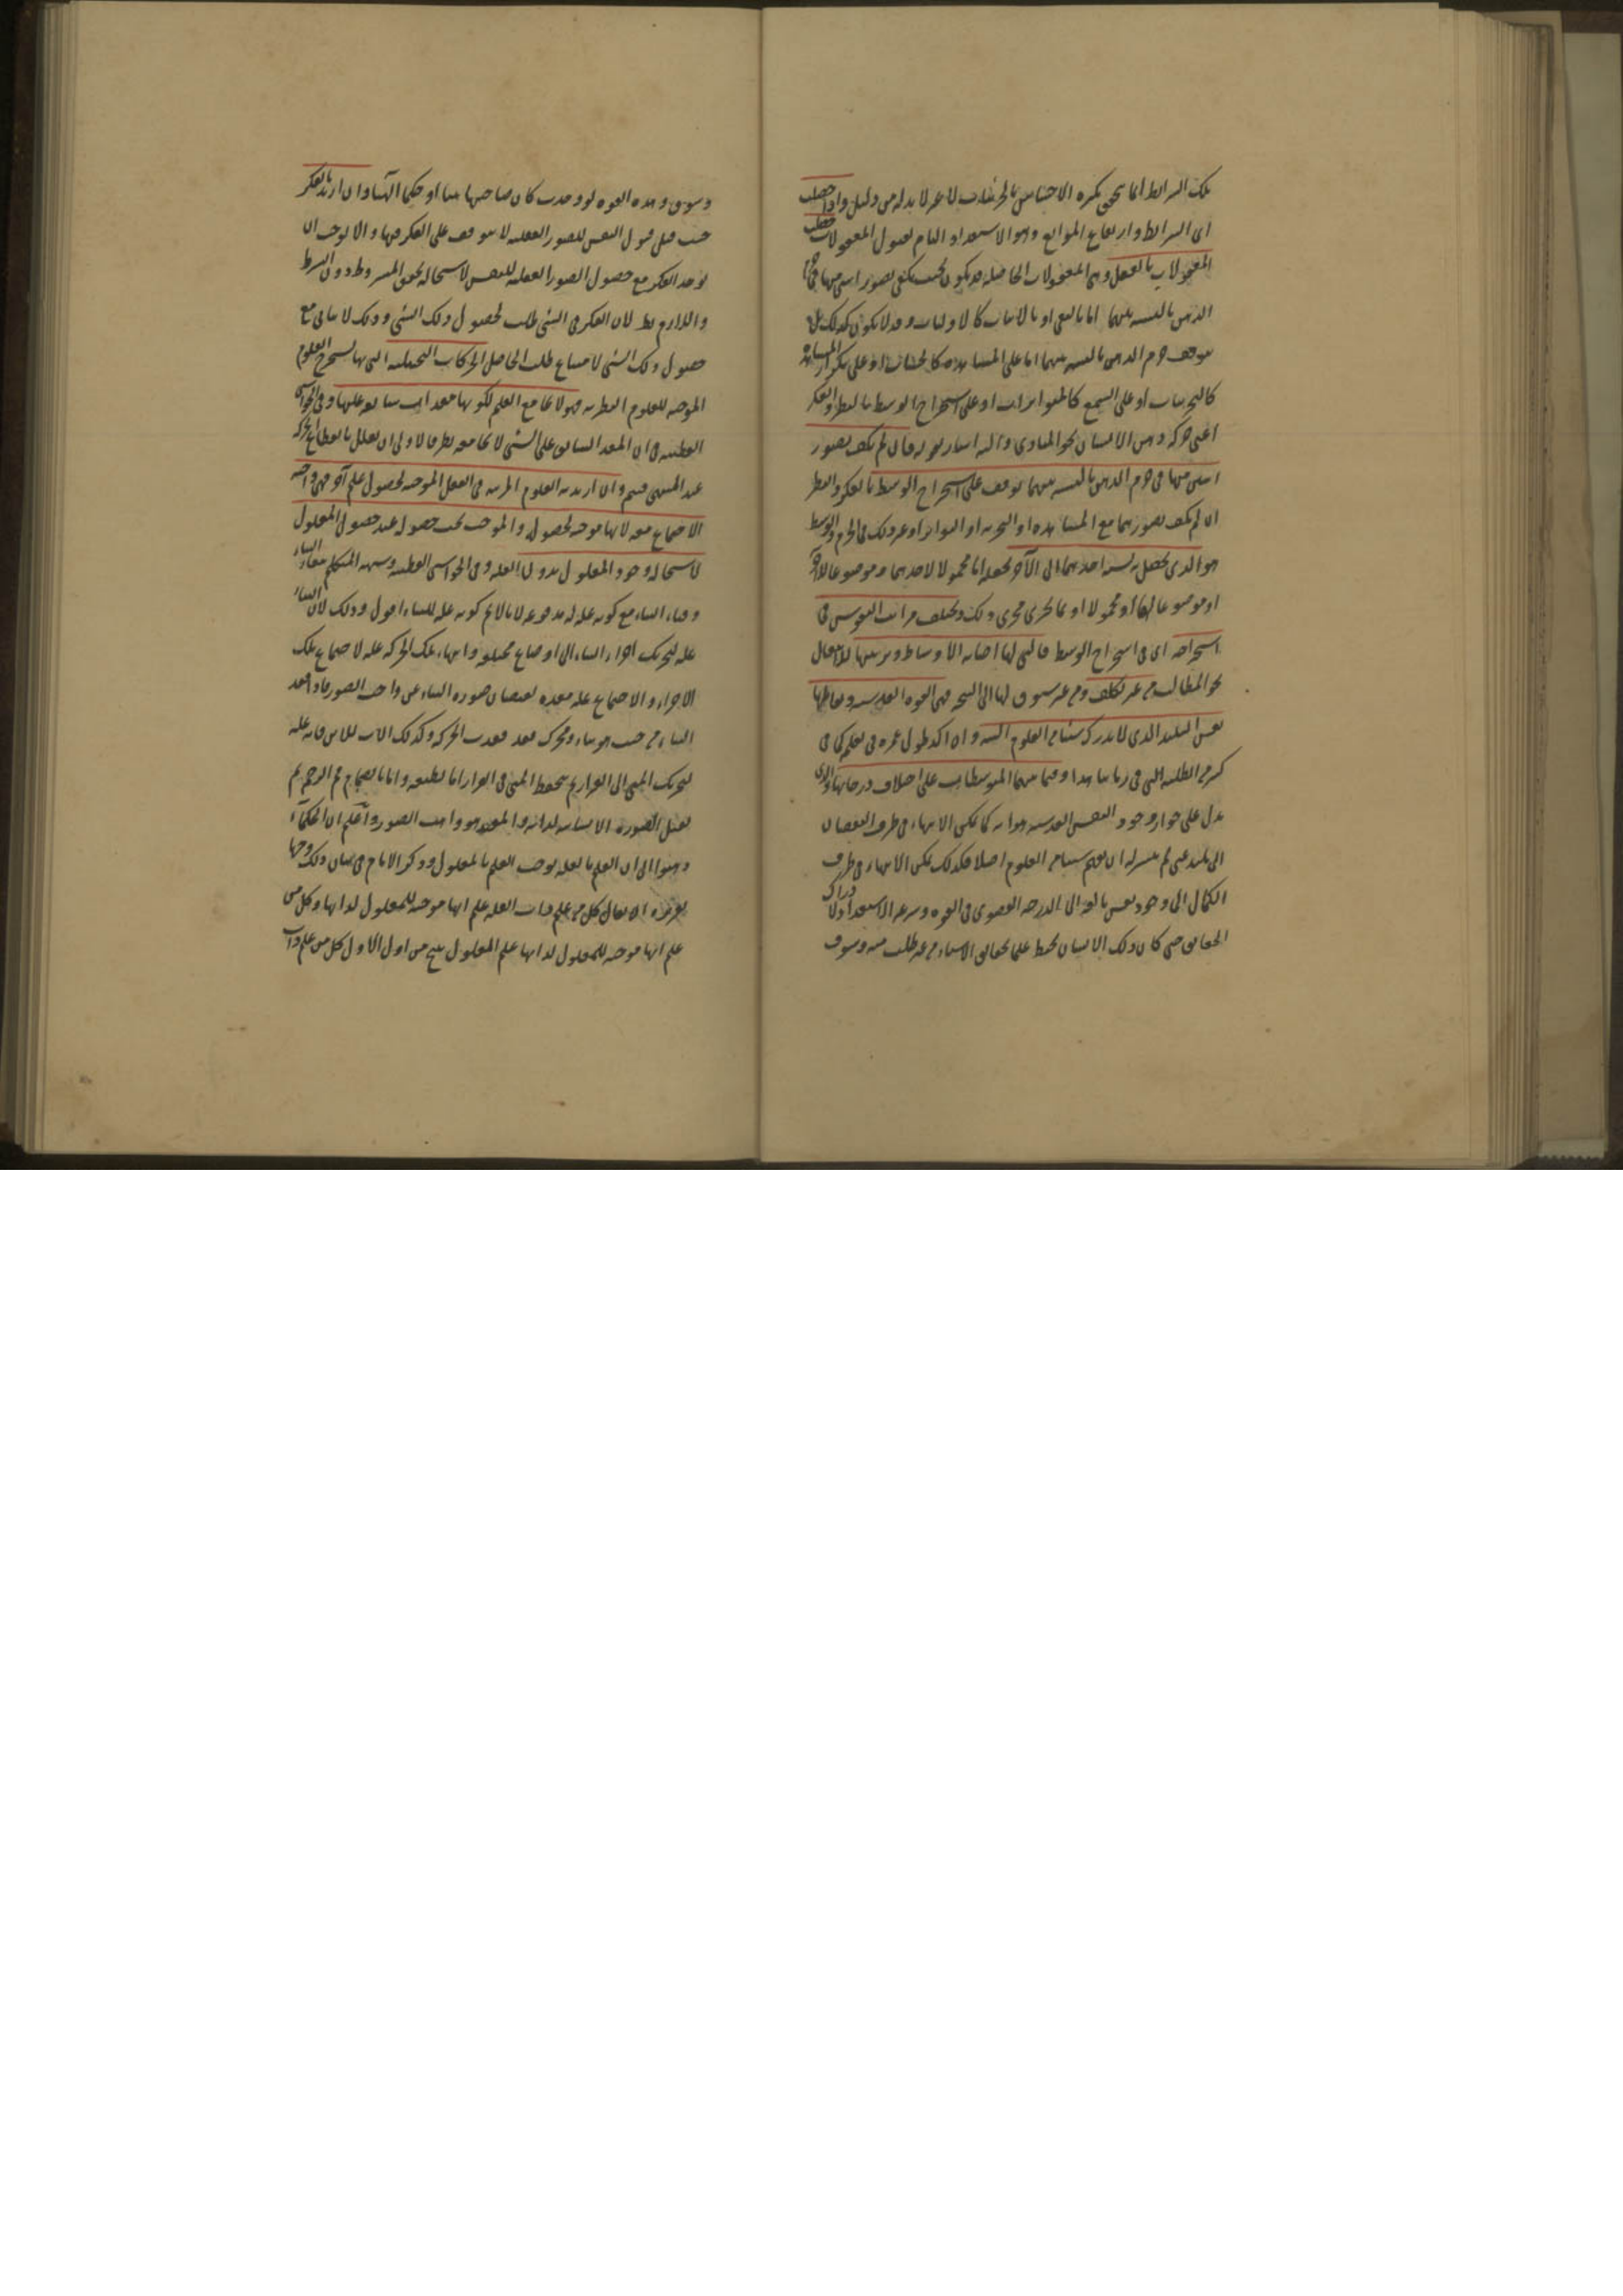 تلك الشرائط انما يتحقق بكثرة الاحساس بالجزئيات لا غير لا بد له من دليل واذا حصلت
اى الشرائط وارتفاع الموانع وهو الاستعداد التام لقبول المعقولات حصلت
المعقولات بالفعل وهى المعقولات الحاصلة قد يكون بحيث يكفى تصور اثنين منها فى جزم
الذهن بالنسبة بينهما اما بالنفى او بالاثبات كالاوليات وقد لا يكون كذلك بل
يتوقف جزم الذهن بالنسبة بينهما اما على المشاهدة كالحسيات او على تكرار المشاهدة
كالتجربيات او على السمع كالمتواترات او على استخراج الوسط بالنظر والفكر
اعنى حركة ذهن الانسان نحو المبادى واليه اشار بقوله فان لم يكف تصور
اثنين منها فى جزم الذهن بالنسبة بينهما توقف على استخراج الوسط بالفكر والنظر
ان لم يكف تصورهما مع المشاهدة او التجربة او التواتر او غير ذلك فى الجزم والوسط
هو الذى يحصل نسبة احدهما الى الآخر بجعله اما محمولا لاحدهما وموضوعا للآخر
او موضوعا لهما او محمولا او ما يجرى مجرى ذلك ويختلف مراتب النفوس فى
استخراجه اى فى استخراج الوسط فالتى لها اصابة الاوساط وترتيبها للانتقال
نحو المطالب من غير تكلف ومن غير شوق لها الى النتيجة فهى القوة القدسية ويقابلها
نفس البليد الذى لا يدرك شيئا من العلوم البتة وان اكد طول عمره فى تعلم كما فى
كثير من الطلبة التى فى زماننا هذا وفيما بينهما المتوسطات على اختلاف درجاتها والذى
يدل على جواز وجود النفس القدسية هو انه كما يمكن الانتهاء فى طرف النقصان
الى بليد غبى لم يتيسر له ان يفهم شيئا من العلوم اصلا فكذلك يمكن الانتهاء فى طرف
الكمال الى وجود نفس بالغة الى الدرجة القصوى فى القوة وسرعة الاستعداد لادراك
الحقايق حتى كان ذلك الانسان يحيط علما بحقايق الاشياء من غير طلب منه وشوق
وشوق وهذه القوة لو وجدت كان صاحبها نبيا او حكيما الهيا وان اريد بالفكر
حيث قيل قبول النفس للصور العقلية لا يتوقف على الفكر فيها والا لوجب ان
يوجد الفكر مع حصول الصور العقلية للنفس لاستحالة تحقق المشروط دون الشرط
واللازم بط لان الفكر فى الشئ طلب لحصول ذلك الشئ وذلك لا يبقى مع
حصول ذلك الشئ لامتناع طلب الحاصل الحركات التخيلية التى بها يستخرج العلوم
الموجبة للعلوم النظرية فهو لا يجامع العلم لكونها معدات سابقة عليها وفى الحواشى
القطبية فى ان المعد السابق على الشئ لا يجامعه نظر فالاولى ان يعلل بانقطاع الحركة
عند المنتهى وان اريد به العلوم المرتبة فى العقل الموجبة لحصول علم آخر فهى واجبة
الاجتماع معه لانها موجبة لحصوله والموجب يجب حصوله عند حصول المعلول
لاستحالة وجود المعلول بدون العلة وفى الحواشى القطبية وشبهة المتكلم ببقاء البناء
وفناء البناء مع كونه علة له مدفوعة لانا لا نم كونه علة للبناء اقول وذلك لان البناء
علة لتحريك اجزاء البناء الى اوضاع مختلفة وانتهاء تلك الحركة علة لاجتماع تلك
الاجزاء والاجتماع علة معدة لفيضان صورة البناء عن واهب الصور فاذا فقد
البناء من حيث هو بناء ومحرك فقد فقدت الحركة وكذلك الاب للابن فانه علة
لتحريك المنى الى القرار ثم يتحفظ المنى فى القرار اما لطبعه واما بانضمام فم الرحم ثم
يقبل الصورة الانسانية لذاته والمفيد هو واهب الصور واعلم ان الحكماء
ذهبوا الى ان العلم بالعلة يوجب العلم بالمعلول وذكر الامام فى بيان ذلك وجها
تقريره ان يقال كل من علم ذات العلة علم انها موجبة للمعلول لذاتها وكل من
علم انها موجبة للمعلول لذاتها علم المعلول ينتج من اول الاول كل من علم ذات